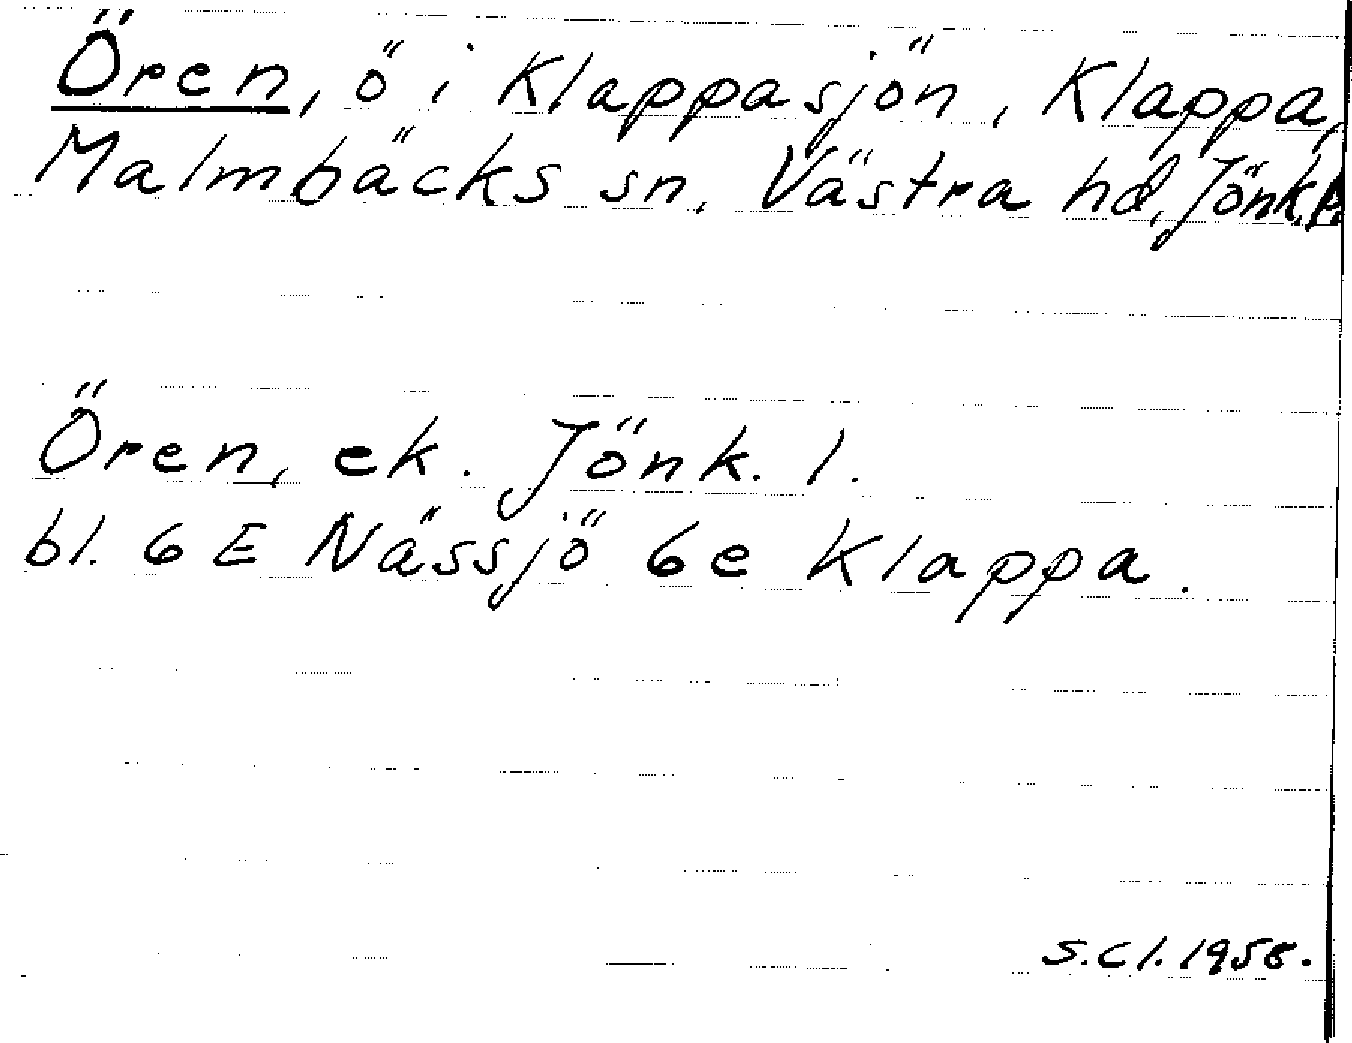 Ören, ö i Klappasjön, Klappa,
Malmbäcks sn. Västra hd, Jönk.
Ören, ek. Jönk. l.
bl. 6 E Nässjö 6e Klappa.
S.Cl. 1958.